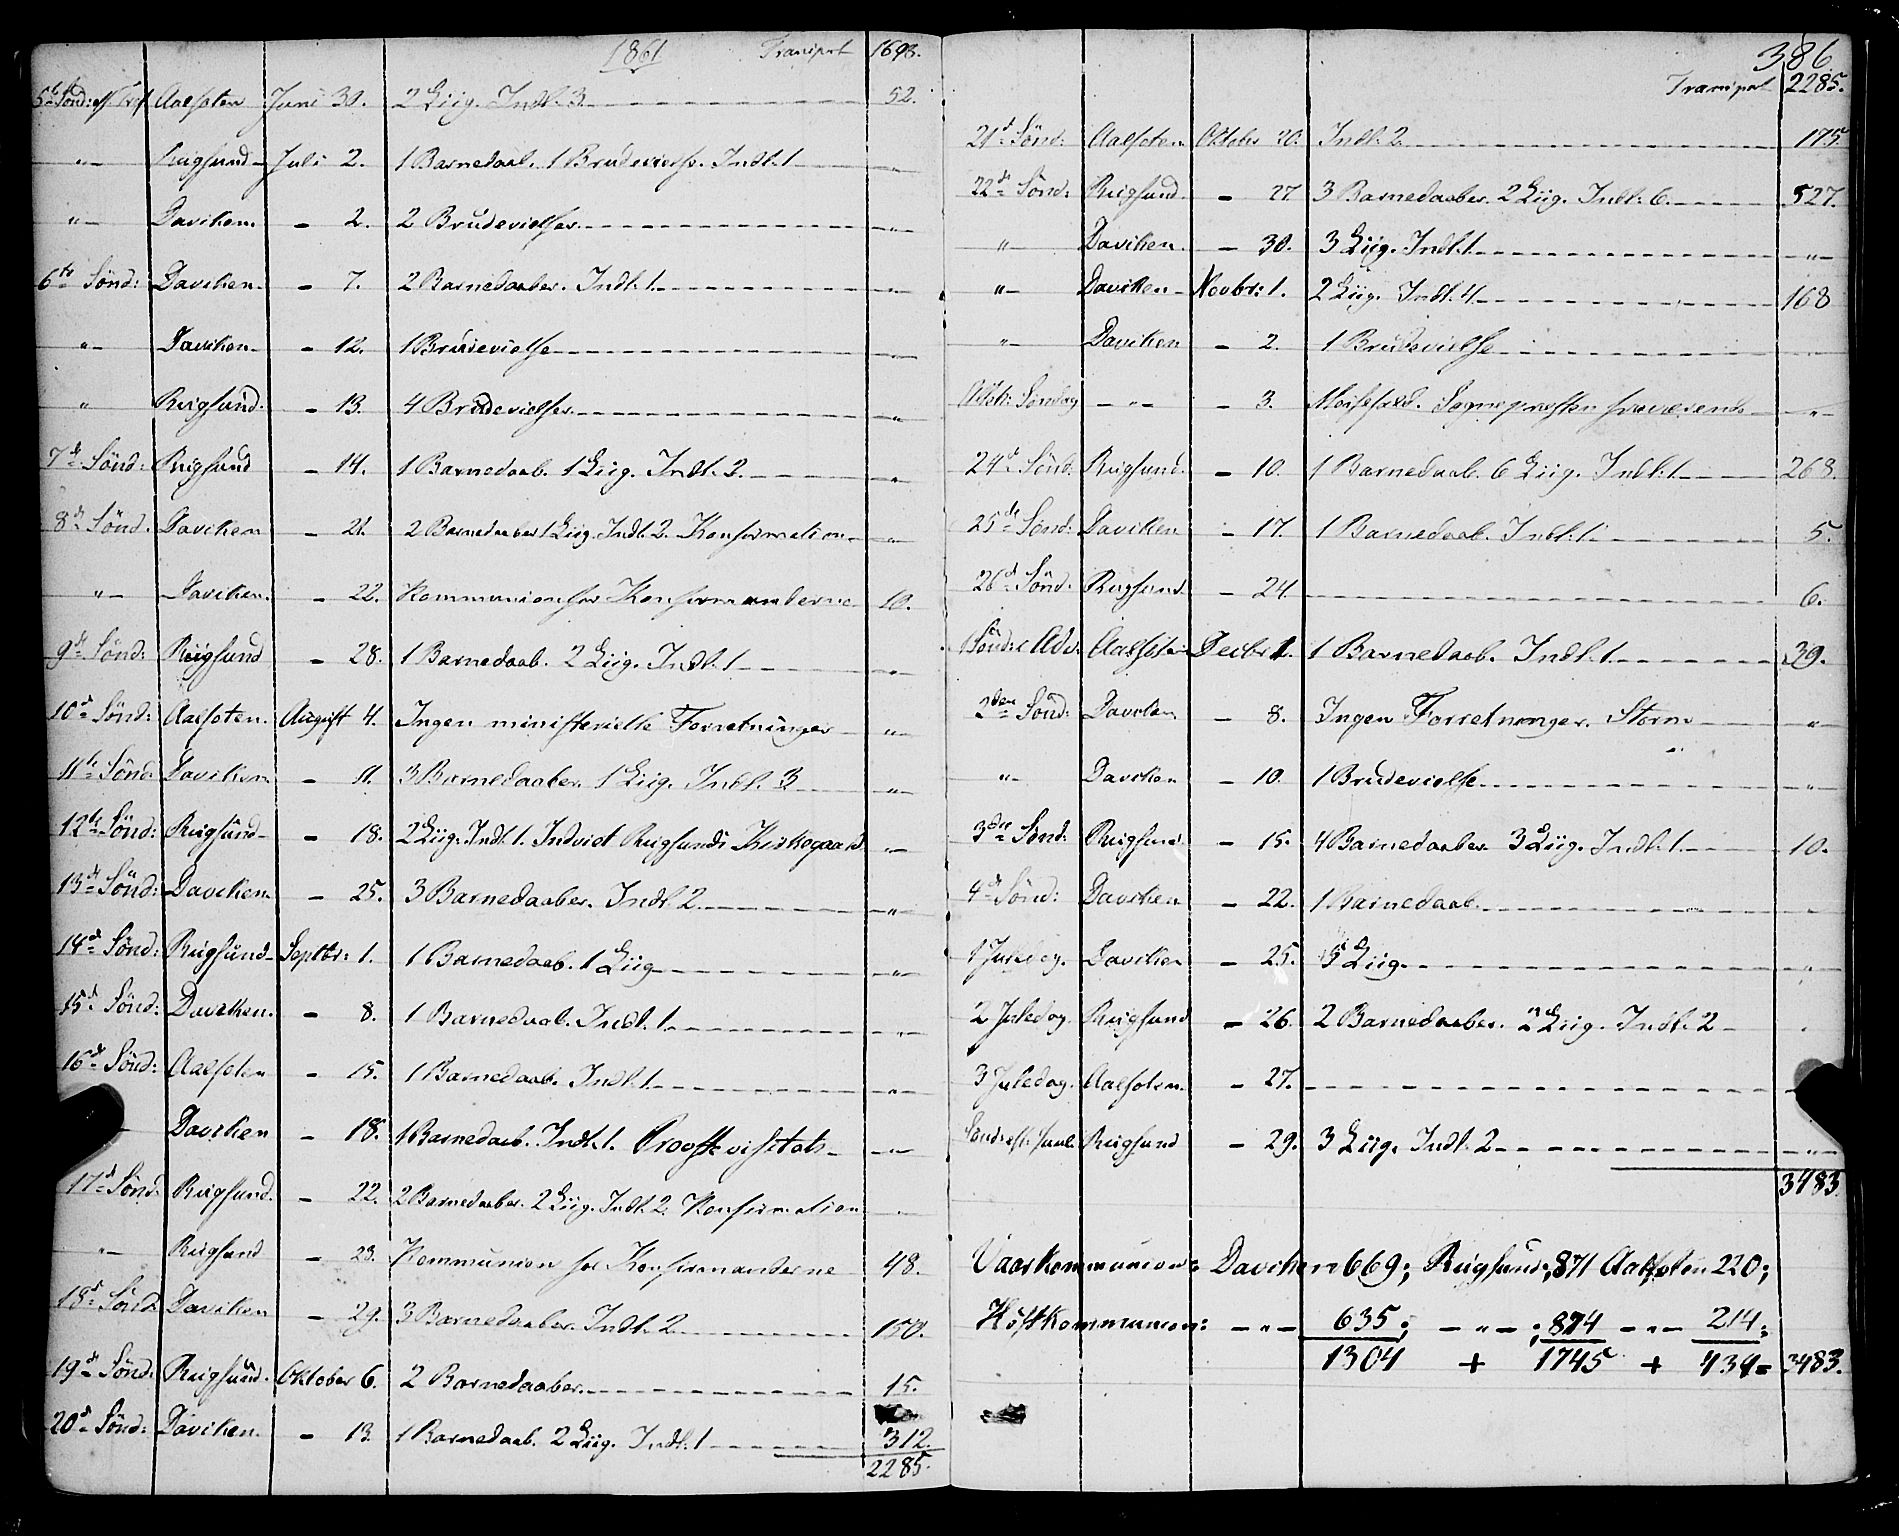 1861 Transport 1698.
5te Sønd: eft Tref Aalfoten Juni 30. 2 Liig. Indl. 3. 52.
"- Rugsund Juli 2. 1 Barnedaab. 1 Brudevielse. Indl. 1 "-
"- Daviken. - 2. 2 Brudevielser. "-
6te Sønd: Daviken. - 7. 2 Barnedaaber. Indl: 1. "-
"- Daviken - 12. 1 Brudevielse "-
" Rugsund. - 13. 4 Brudevielser. "-
7de Sønd: Rugsund - 14. 1 Barnedaab. 1 Liig. Indl. 2. "
8de Sønd. Daviken - 21. 2 Barnedaaber 1 Liig. Indl. 2. Konfirmation "-
"- Daviken. - 22. Kommunion for Konfirmanderne 10.
9de Sønd: Rugsund - 28. 1 Barnedaab. 2 Liig. Indl. 1 "
10de Sønd: Aalfoten. August 4. Ingen ministerielle Forretninger "-
11te Sønd: Daviken - 11. 3 Barnedaaber. 1 Liig. Indl. 3 "-
12te Sønd: Rugsund - 18. 2 Liig. Indl. 1. Indviet Rugsunds Kirkegaard "-
13de Sønd: Daviken. - 25. 3 Barnedaaber. Indl. 2. "-
14de Sønd: Rugsund Septbr: 1. 1 Barnedaab. 1 Liig "-
15de Sønd: Daviken. - 8. 1 Barnedaab. Indl. 1. "-
16de Sønd: Aalfoten - 15. 1 Barnedaab. Indl. 1. "-
Daviken - 18. 1 Barnedaab. Indl. 1. Provstevisitats "-
17de Sønd. Rugsund. - 22. 2 Barnedaaber. 2 Liig. Indl. 2. Konfirmation "
"- Rugsund - 23. Kommunion for Konfirmanderne 48.
18de Sønd. Daviken - 29. 3 Barnedaaber. Indl. 2. 150.
19de Sønd. Rugsund. Oktober 6. 2 Barnedaaber. 15.
20de Sønd: Daviken. - 13. 1 Barnedaab. 2 Liig. Indl. 1 312.
2285.
386
Transport 2285.
21de Sønd: Aalfoten Oktober 20. Indl: 2. 175
22de Sønd: Rugsund. - 27. 3 Barnedaaber. 2 Liig. Indl: 6. 527.
"- Daviken. - 30. 3 Liig. Indl. 1 "-
"- Daviken - Novbr: 1. 2 Liig. Indl. 4. 168
"- Daviken - 2. 1 Brudevielse "
Søndag - "- - 3. Sognepresten fraværende "-
24de Sønd: Rugsund. - 10. 1 Barnedaab. 6 Liig. Indl: 1 268.
25de Sønd: Daviken - 17. 1 Barnedaab. Indl: 1. 5.
26de Sønd: Rugsund - 24. 6.
Sønd: i Adv: Aalfoten Decbr 1. 1 Barnedaab. Indl. 1. 39.
2den Sønd: Daviken - 8. Ingen Forretninger. Storm "
"- Daviken - 10. 1 Brudevielse. "-
3die Sønd: Rugsund - 15. 4 Barnedaaber 3 Liig. Indl. 1. 10.
4de Sønd: Daviken - 22. 1 Barnedaab. "
1 Juledag. Daviken - 25. 5 Liig. "
2 Juledag. Rugsund - 26. 2 Barnedaaber. 2 Liig. Indl. 2 "
3 Juledag. Aalfoten. - 27.
Sønd: eft. Juul Rugsund - 29. 3 Liig. Indl. 2 "-
3483.
Vaarkommunion: Daviken 669; Rugsund; 871 Aalfoten 220;
Høstkommunion: - "- 635; - "- ; 874 - "- 214;
1304 + 1745 + 434 = 3483.